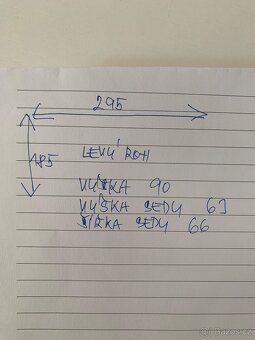 295
185
LEVÝ ROH
VÝŠKA 90
VÝŠKA SEDU 63
ŠÍŘKA SEDU 66